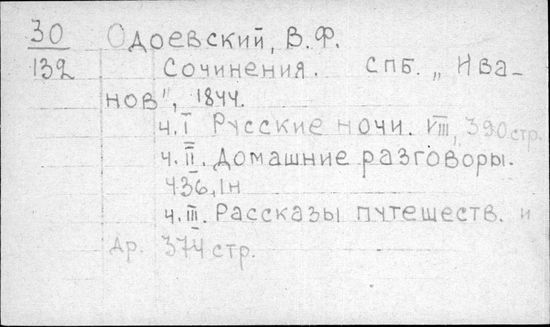 30 Одоевский, В.Ф.
132 Сочинения. спб. „Ива-
нов", 1844.
ч.I Русские ночи. VIII, 390 стр.
ч.II. Домашние разговоры.
436, 1н
ч.III. Рассказы путешеств. и
др. 374 стр.